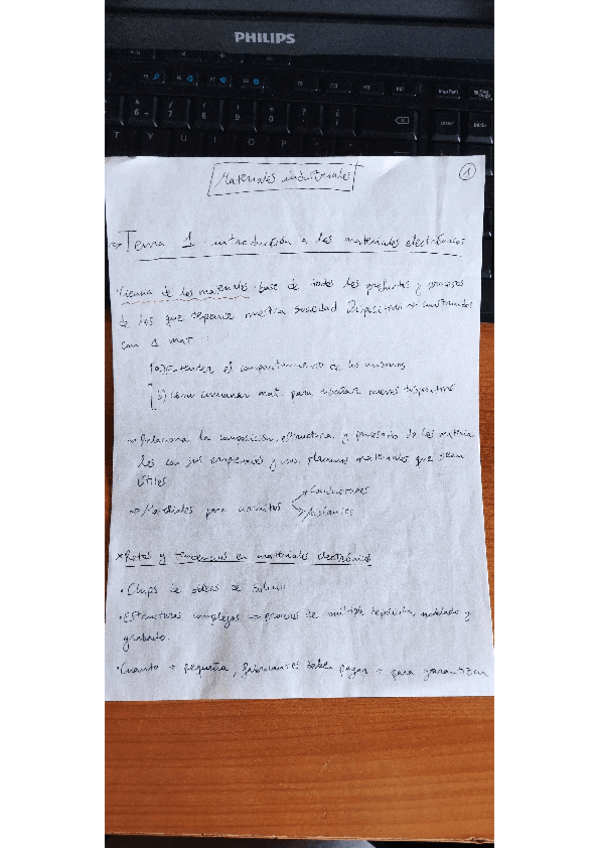 PHILIPS
Materiales industriales
1
Tema 1 introducción a los materiales electrónicos
Ciencia de los materiales base de todos los productos y procesos
de los que nuestra sociedad
con 1 mat
a) Entender el comportamiento de los mismos
b) cómo mat. para diseñar nuevos dispositivos
Relaciona la composición, estructura y de los materia
les con sus y usos. materiales que sean
útiles
Materiales para circuitos
Conductores
Aislantes
Retos y tendencias en materiales electrónicos
Chips de obleas de
Estructuras complejas → procesos de múltiple, moldeado y
grabado.
Cuanto + pequeña, fabricantes deben pagar + para garantizar